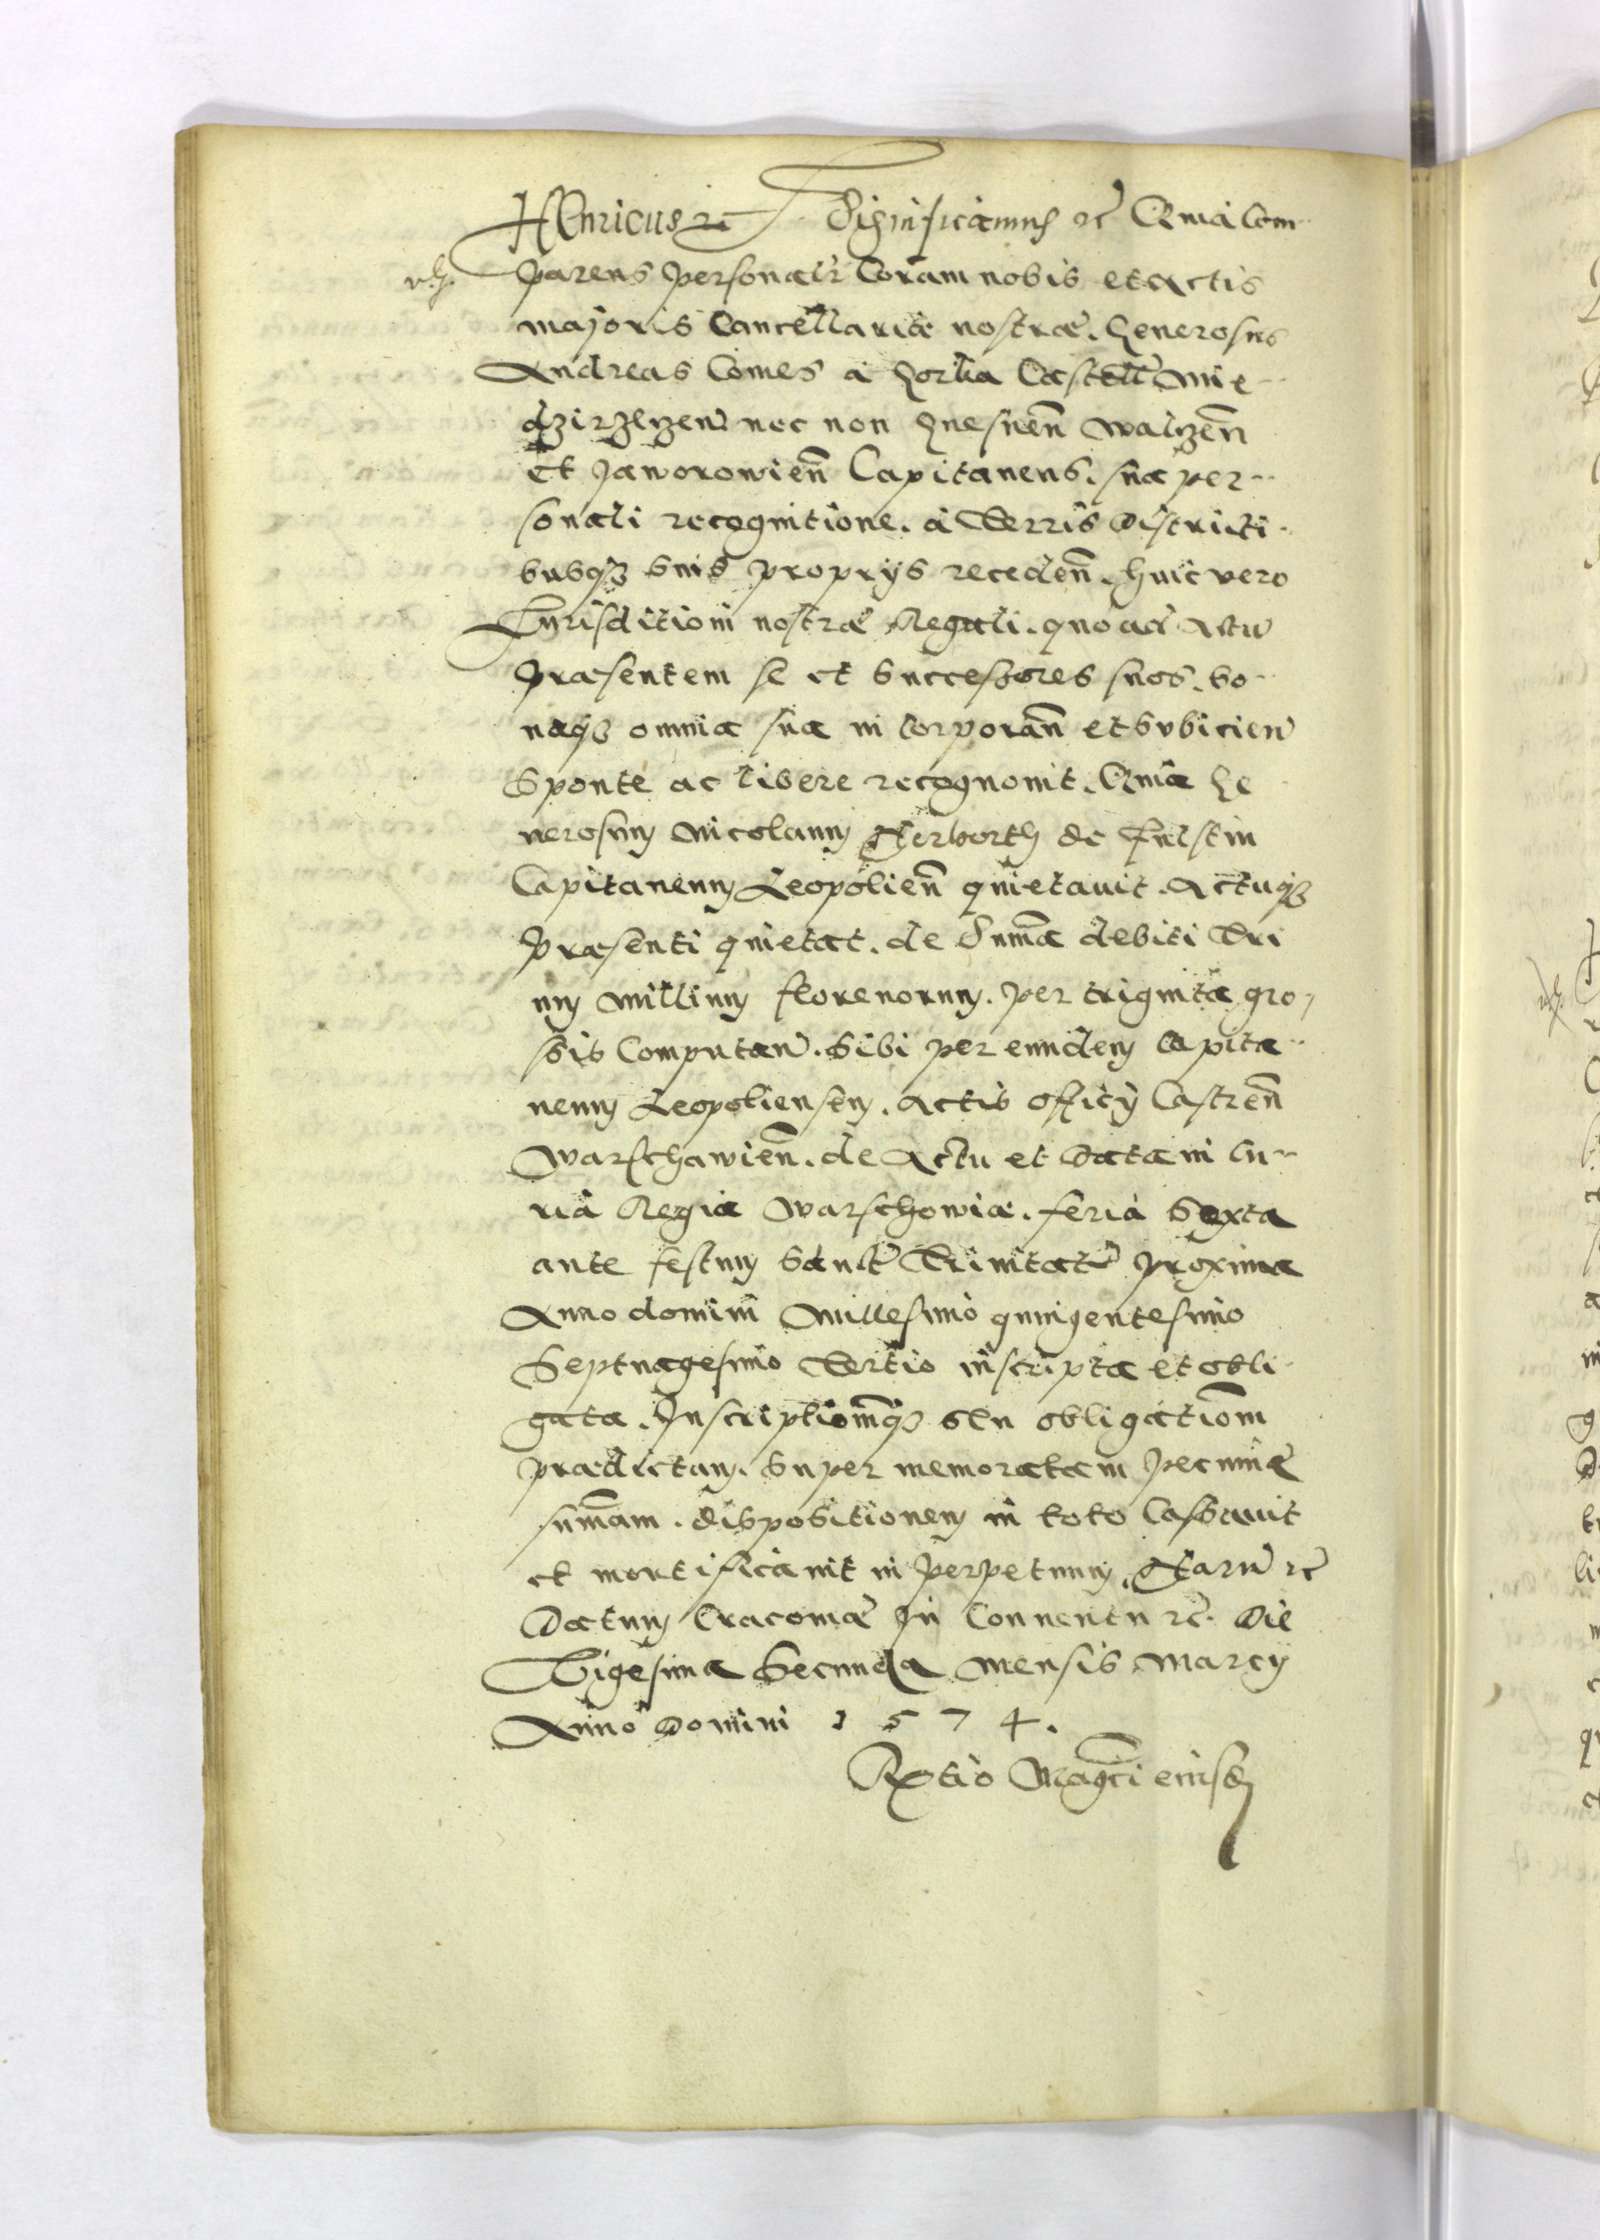 Henricus etc Significamus etc Quia Com-
parens personalr Coram nobis et Actis
majoris Cancellariæ nostræ. Generosus
Andreas Comes a Gorka Castell Mie-
dzirzeczen nec non Gnesnen Walczen
Et Jaworowien Capitaneus. sua per-
sonali recognitione. a Terris Districti-
busq3 suis proprys receden. huic vero
Jurisditioni nostræ Regali. quo ad Actu
præsentem se et Successores suos. bo-
naq3 omnia sua in corporan et Subicien
Sponte ac libere recognovit. Quia Ge
nerosum Nicolaum Herborth de Fulstin
Capitaneum Leopolien quietavit. Actuq3
præsenti quietat. de Suma debiti Tri
um Millium florenorum. per triginta gro-
ssis Computan. Sibi per eundem Capita-
neum Leopoliensem. Actis Officÿ Castren
Warschawien. de Actu et Data in Cu-
ria Regia Warschowiæ. feria Sexta
ante festum Sanct Trinitat proxima
Anno domini Millesimo quingentesimo
Septuagesimo Tertio inscripta et obli
gata. Inscriptiomq3 seu obligationi
prædictam. Super memoratam pecuniæ
sumam. dispositionem in toto Cassavit
et mortificavit in perpetuum. Harum etc
Datum Cracoviæ In Conventu etc. Die
Vigesima Secunda Mensis Marcÿ
Anno Domini 1574.
Rtio Magci eiusdem